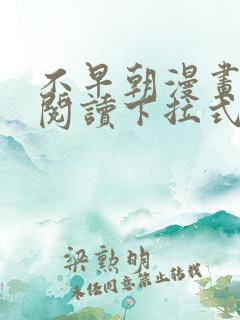 不早朝漫畫
閱讀下拉式
梁勲明
未经同意禁止转载